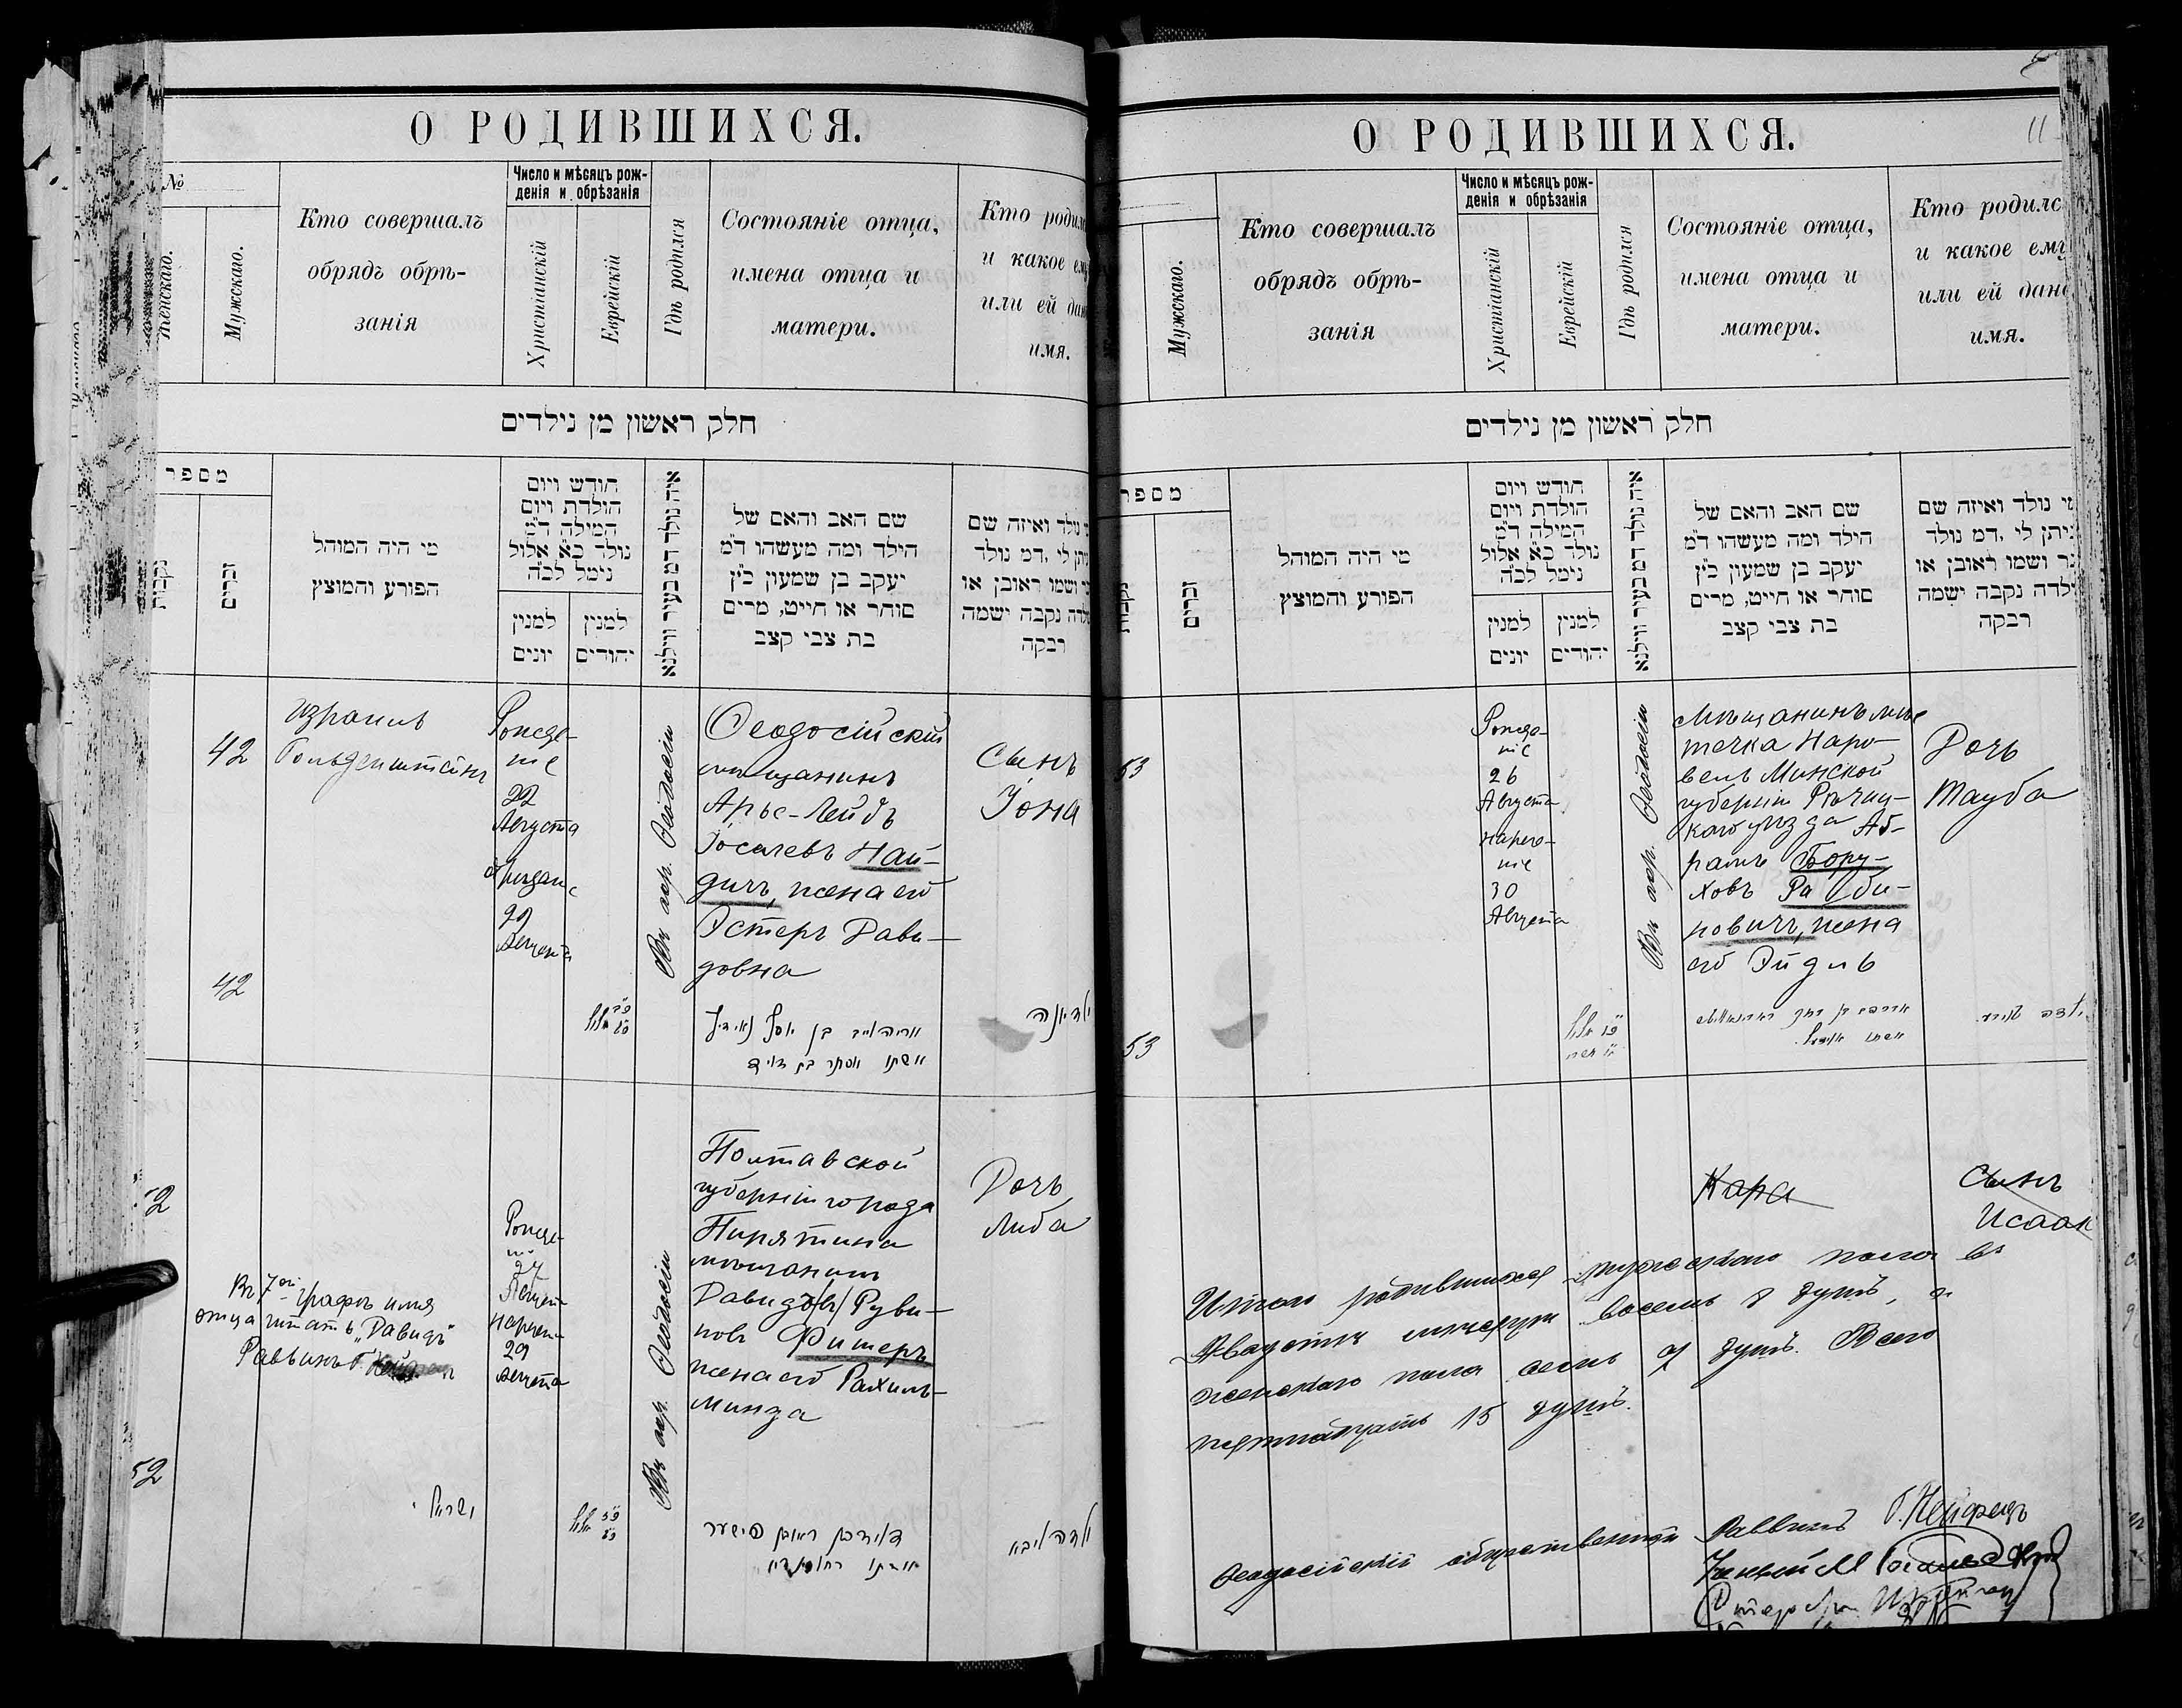 О РОДИВШИХСЯ.
№
Женскаго.
Мужскаго.
Кто совершалъ
обрядъ обрѣ-
занія
Число и мѣсяцъ рож-
денія и обрѣзанія
Христіанскій
Еврейскій
Гдѣ родился
Состояніе отца,
имена отца и
матери.
Кто родился
и какое ему
или ей дано
имя.
חלק ראשון מן נילדים
מספר
נקבות
זכרים
מי היה המוהל
הפורע והמוצץ
חודש ויום
הולדת ויום
המילה ד״מ
נולד כ״א אלול
נימל לכ״ה
למנין
יונים
למנין
יהודים
איה נולד דמ בעיר ווילנא
שם האב והאם של
הילד ומה מעשהו ד״מ
יעקב בן שמעון כ״ץ
סוחר או חייט, מרים
בת צבי קצב
מי נולד ואיזה שם
ניתן לי, דמ נולד
זכר ושמו ראובן או
ילדה נקבה ישמה
רבקה
42
Израиль
Гольденштейнъ
Рожде-
ніе
22
Августа
обрѣзаніе
29
Августа
Въ гор. Ѳеодосіи
Ѳеодосійскій
мѣщанинъ
Арье-Лейбъ
Іосилевъ Най-
дичъ, жена его
Эстеръ Дави-
довна
Сынъ
Іона
42
אריה לייב בן יוסף נאידיץ
אשתו אסתר בת דוד
ילד יונה
52
Рожде-
ніе
27
Августа
нарече-
29
Августа
Въ гор. Ѳеодосіи
Полтавской
губерніи города
Пирятина
мѣщанинъ
Давидовъ Руви-
новъ Фишеръ
жена его Рахиль-
Минда
Дочь
Либа
Въ 7ой графѣ имя
отца читать „Давидъ“
Раввинъ Г.
52
דוד בן ראובן פישער
ילדה ליבא
О РОДИВШИХСЯ.
11
Мужскаго.
Кто совершалъ
обрядъ обрѣ-
занія
Число и мѣсяцъ рож-
денія и обрѣзанія
Христіанскій
Еврейскій
Гдѣ родился
Состояніе отца,
имена отца и
матери.
Кто родился
и какое ему
или ей дано
имя.
חלק ראשון מן נילדים
מספר
נקבות
זכרים
מי היה המוהל
הפורע והמוצץ
חודש ויום
הולדת ויום
המילה ד״מ
נולד כ״א אלול
נימל לכ״ה
למנין
יונים
למנין
יהודים
איה נולד דמ בעיר ווילנא
שם האב והאם של
הילד ומה מעשהו ד״מ
יעקב בן שמעון כ״ץ
סוחר או חייט, מרים
בת צבי קצב
מי נולד ואיזה שם
ניתן לי, דמ נולד
זכר ושמו ראובן או
ילדה נקבה ישמה
רבקה
53
Рожде-
ніе
26
Августа
нарече-
ніе
30
Августа
Въ гор. Ѳеодосіи
Мѣщанинъ мѣс-
течка Наро-
вель Минской
губерніи Рѣчиц-
каго уѣзда Аб-
рамъ Бору-
ховъ Раби-
новичъ, жена
его Эйдль
Дочь
Тауба
53
Кара
Сынъ
Исаак
Итого родившихся мужскаго пола въ
Августѣ мѣсяцѣ восемь 8 душъ, а
женскаго пола семь 7 душъ. Всего
пятнадцать 15 душъ.
Ѳеодосійскій общественный Раввинъ Г. Нейфельдъ
Ученый М.
Староста